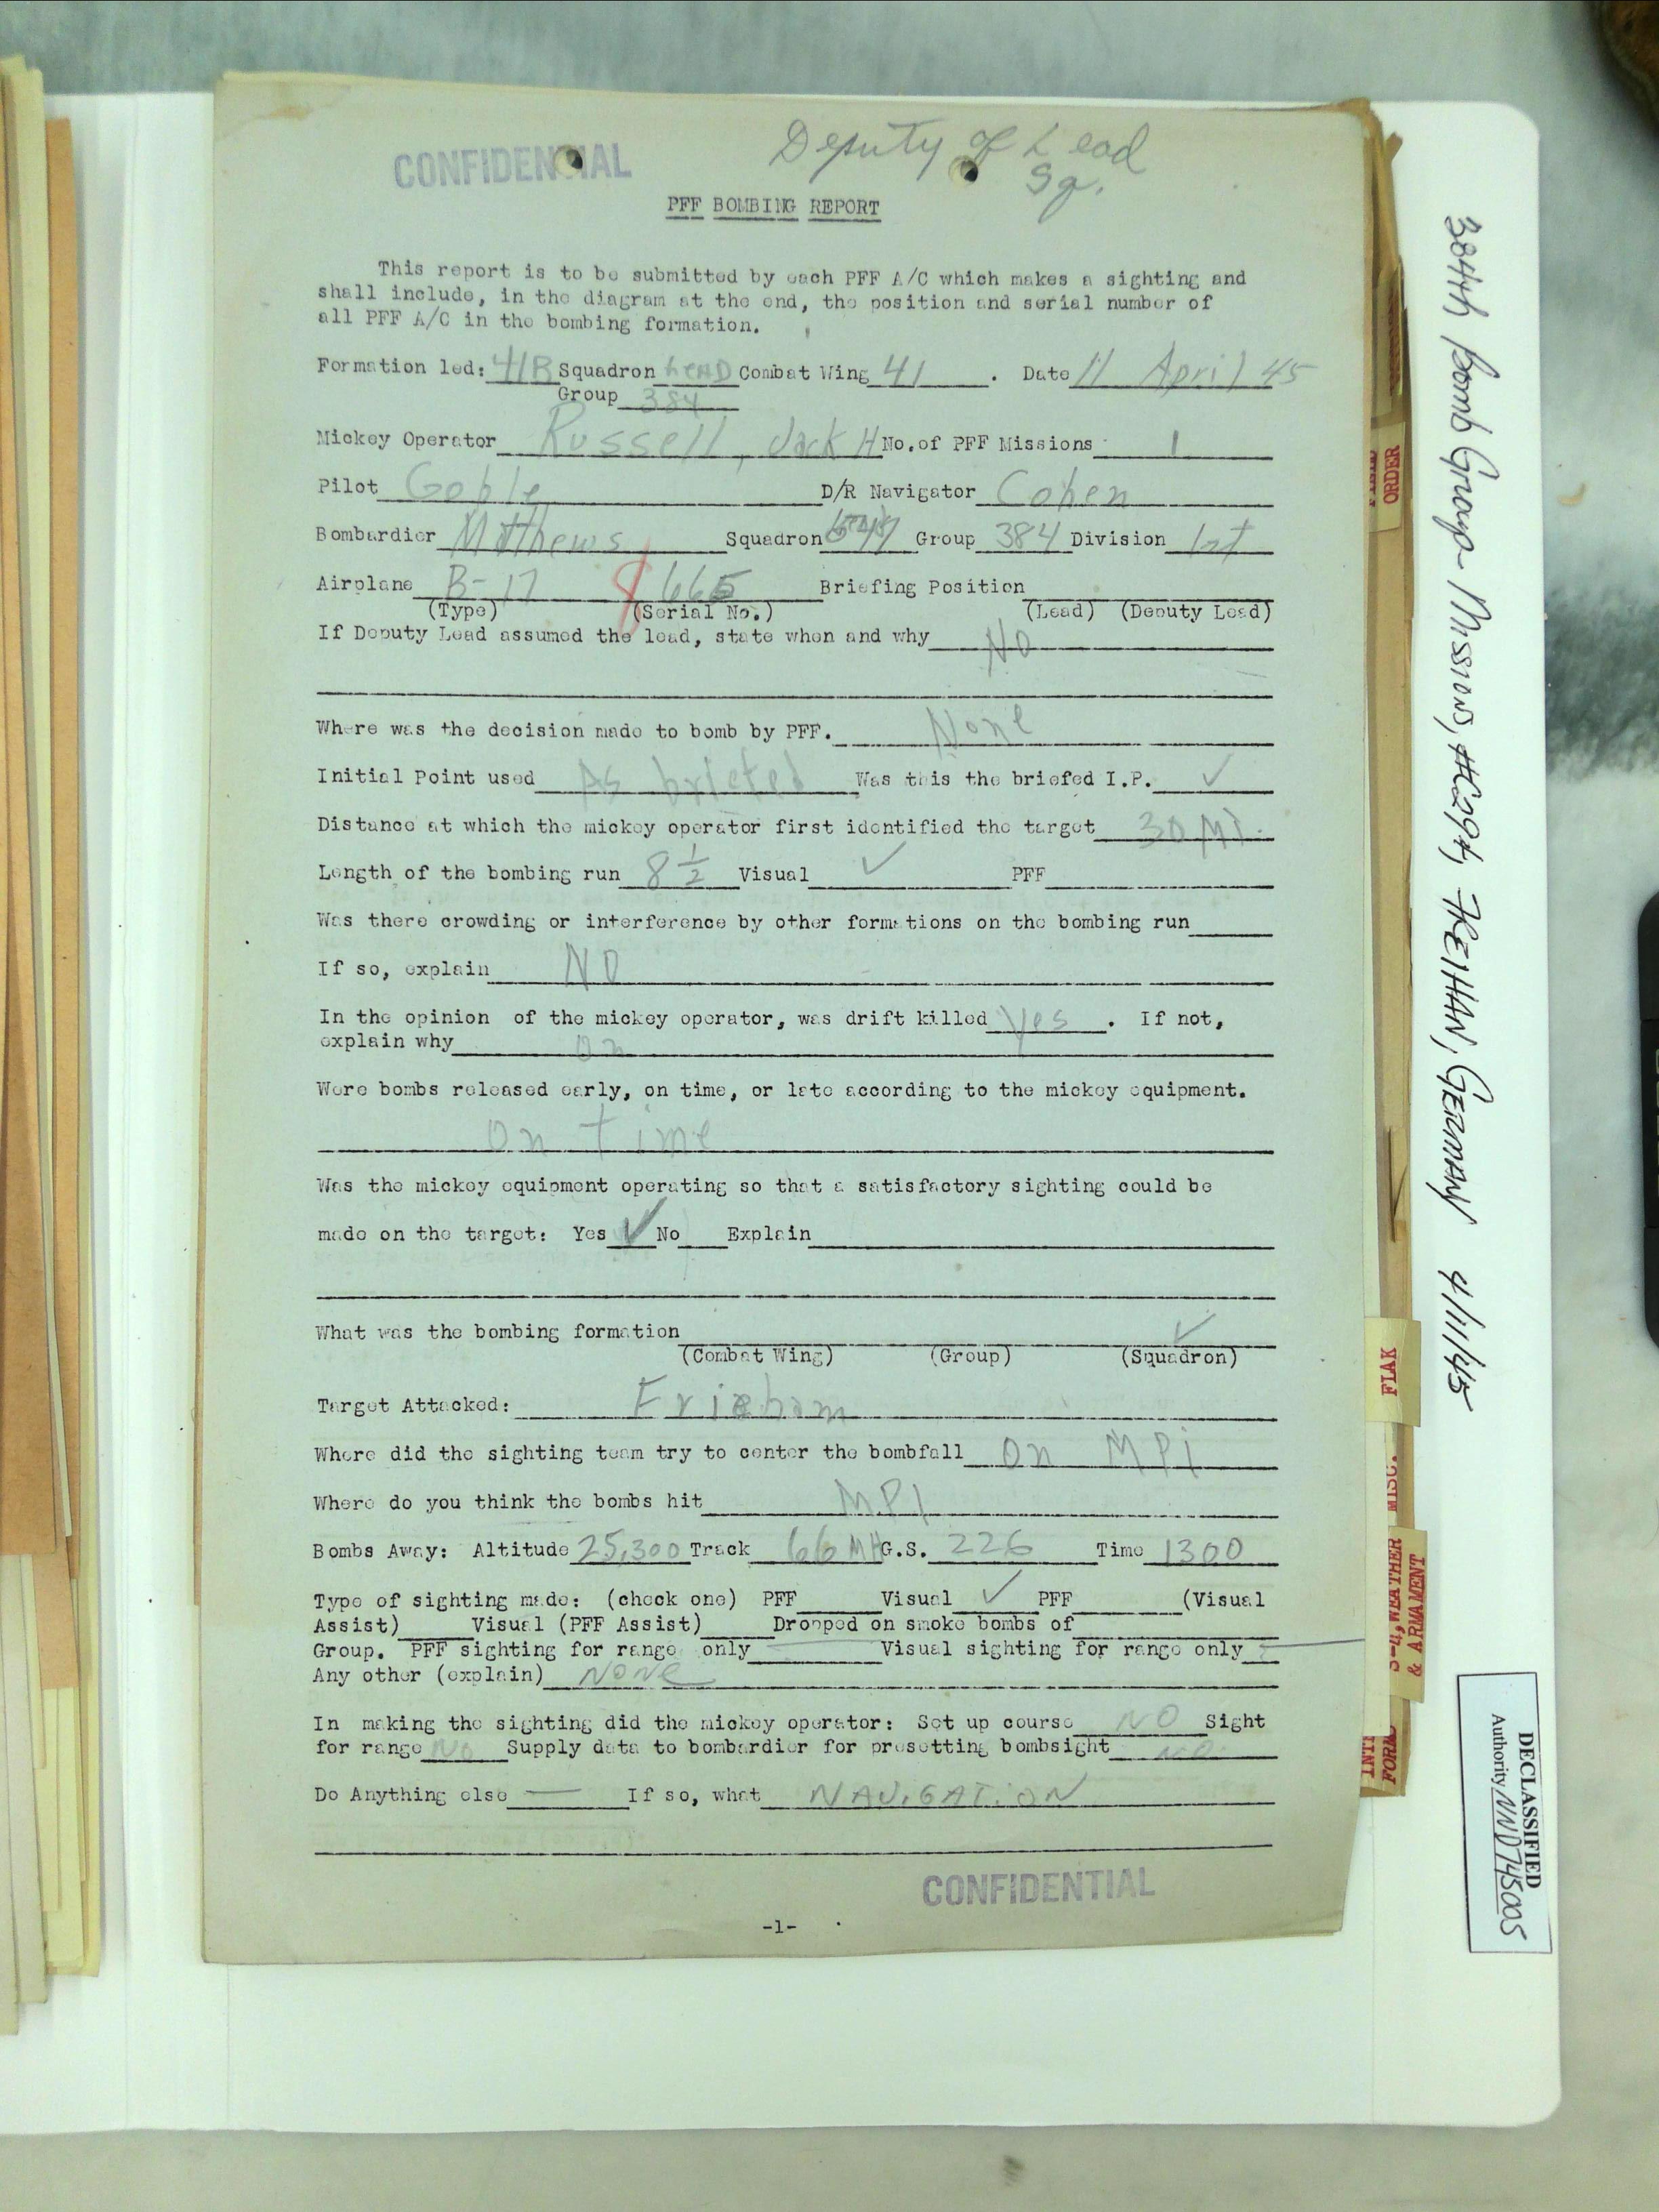 CONFIDENTIAL
Deputy of Lead
Sq.
PFF BOMBING REPORT
This report is to be submitted by each PFF A/C which makes a sighting and
shall include, in the diagram at the end, the position and serial number of
all PFF A/C in the bombing formation.
Formation led: 41B Squadron LEAD Combat Wing 41 . Date 11 April 45
Group 384
Mickey Operator Russell, Jack H No. of PFF Missions 1
Pilot Goble D/R Navigator Cohen
Bombardier Matthews Squadron Group 384 Division 1st
Airplane B-17 8665 Briefing Position
(Type) (Serial No.) (Lead) (Deputy Lead)
If Deputy Lead assumed the lead, state when and why NO
Where was the decision made to bomb by PFF. None
Initial Point used As briefed Was this the briefed I.P. ✓
Distance at which the mickey operator first identified the target 30 Mi.
Length of the bombing run 8 1/2 Visual ✓ PFF
Was there crowding or interference by other formations on the bombing run
If so, explain NO
In the opinion of the mickey operator, was drift killed Yes . If not,
explain why on
Were bombs released early, on time, or late according to the mickey equipment.
On time
Was the mickey equipment operating so that a satisfactory sighting could be
made on the target: Yes ✓ No Explain
What was the bombing formation ✓
(Combat Wing) (Group) (Squadron)
Target Attacked:
Where did the sighting team try to center the bombfall on MPi
Where do you think the bombs hit MPI
Bombs Away: Altitude 25,300 Track 66 MH G.S. 226 Time 1300
Type of sighting made: (check one) PFF Visual ✓ PFF (Visual
Assist) Visual (PFF Assist) Dropped on smoke bombs of
Group. PFF sighting for range only Visual sighting for range only
Any other (explain) NONE
In making the sighting did the mickey operator: Set up course NO Sight
for range No Supply data to bombardier for presetting bombsight NO
Do Anything else — If so, what NAVIGATION
CONFIDENTIAL
-1-
ORDER
FLAK
MISC.
S-4, WEATHER
& ARMAMENT
384th Bomb Group Mission, #C294, FREIHAN, GERMANY 4/11/45
DECLASSIFIED
Authority NND745005